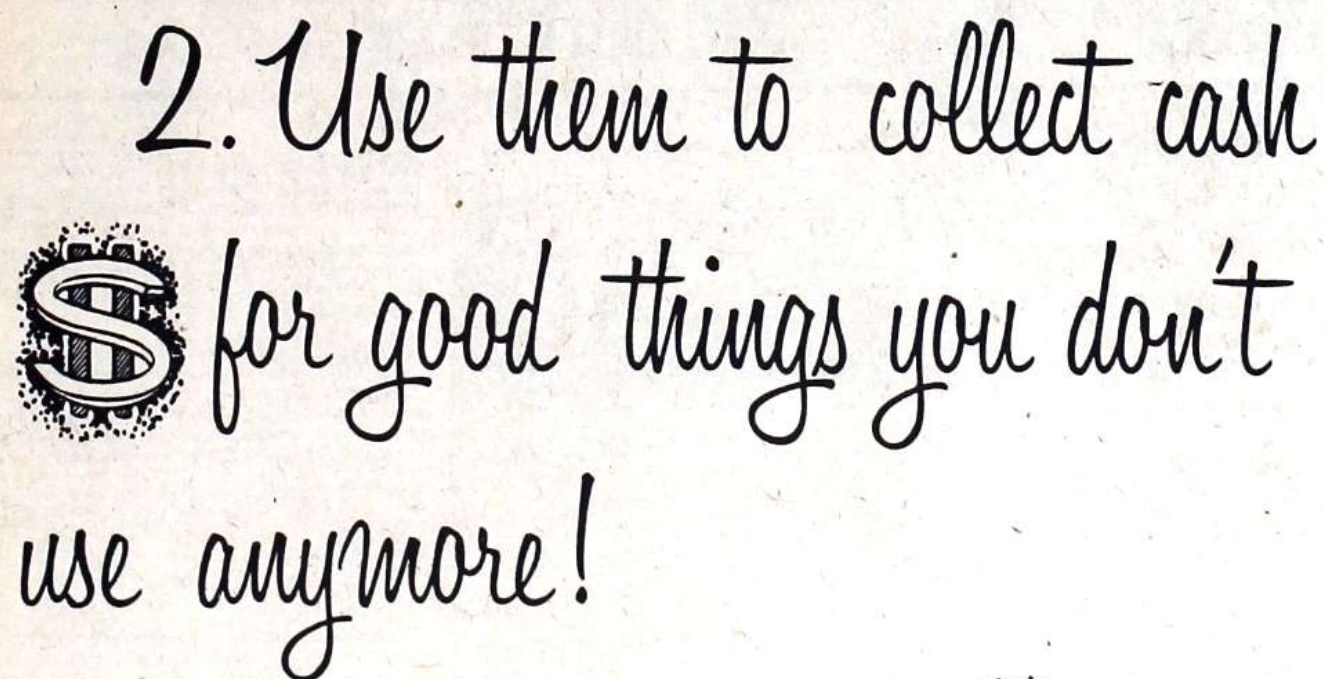 2. Use them to collect cash
$ for good things you don't
use anymore!